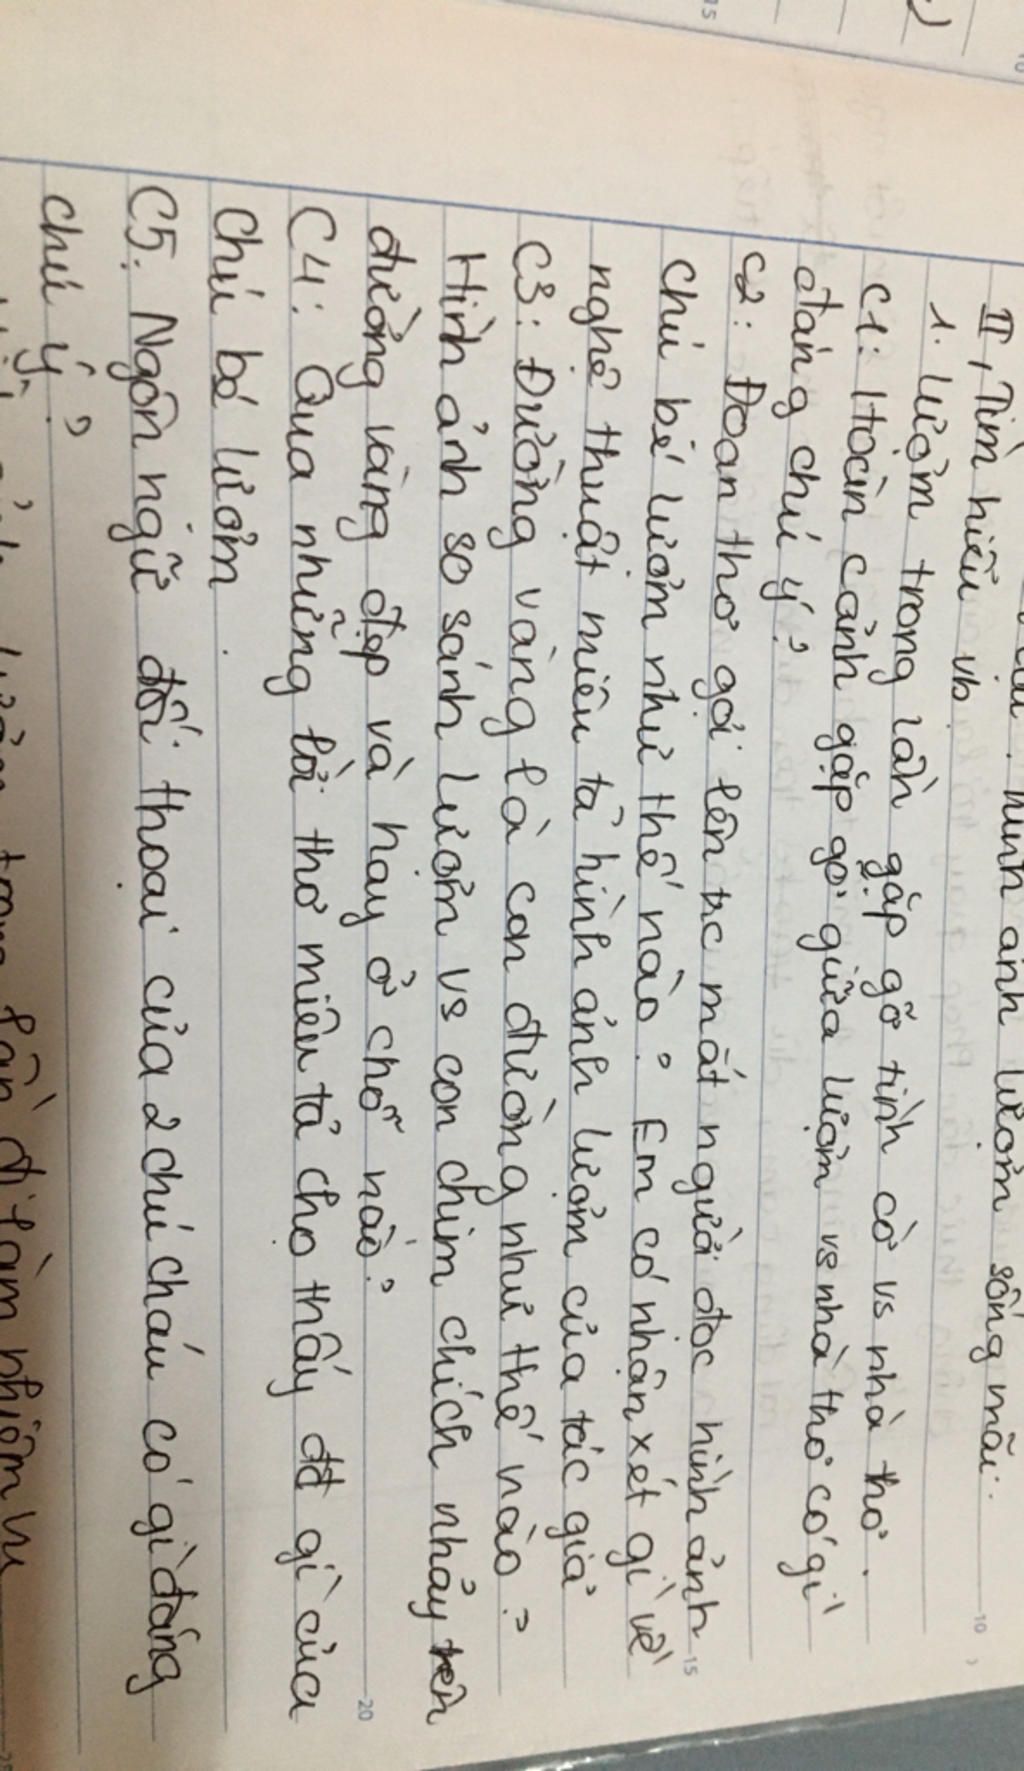 hình ảnh lượm sống mãi.
II, Tìm hiểu vb
1. lượm trong lần gặp gỡ tình cờ vs nhà thơ.
C1: Hoàn cảnh gặp gỡ giữa lượm vs nhà thơ có gì
đáng chú ý?
C2: Đoạn thơ gợi lên trc mắt người đọc hình ảnh
chú bé lượm như thế nào? Em có nhận xét gì về
nghệ thuật miêu tả hình ảnh lượm của tác giả
C3: Đường vàng là con đường như thế nào?
Hình ảnh so sánh lượm vs con chim chích nhảy trên
đường vàng đẹp và hay ở chỗ nào?
C4: Qua những lời thơ miêu tả cho thấy đđ gì của
Chú bé lượm.
C5: Ngôn ngữ đối thoại của 2 chú cháu có gì đáng
chú ý?
lượm trong lần đi làm nhiệm vụ
10
15
20